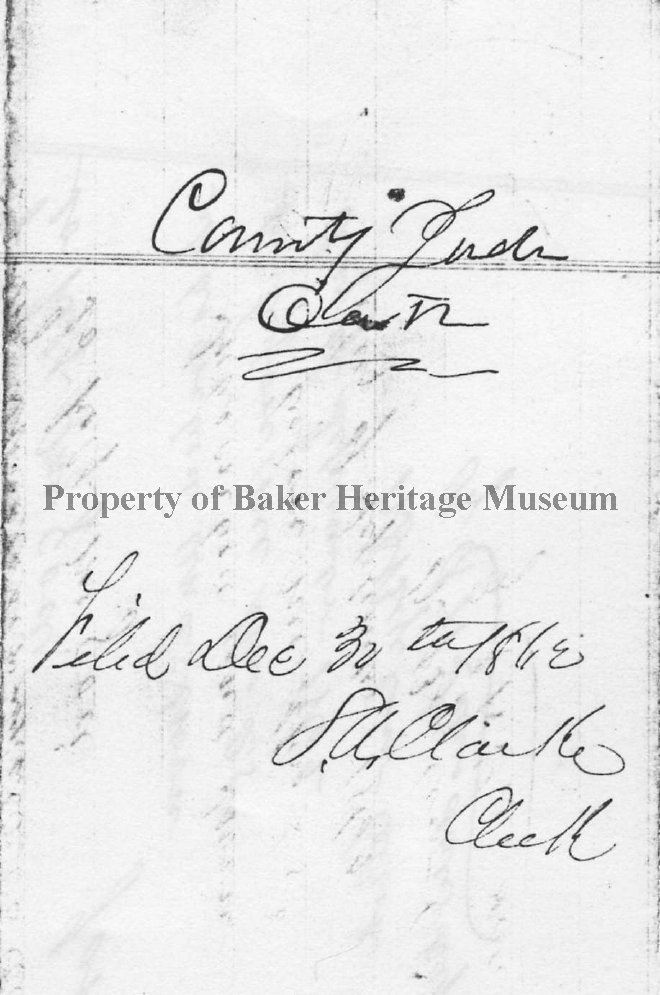 County Judge
Oath
Property of Baker Heritage Museum
Filed Dec 30th 1862
S.A. Clarke
Clerk